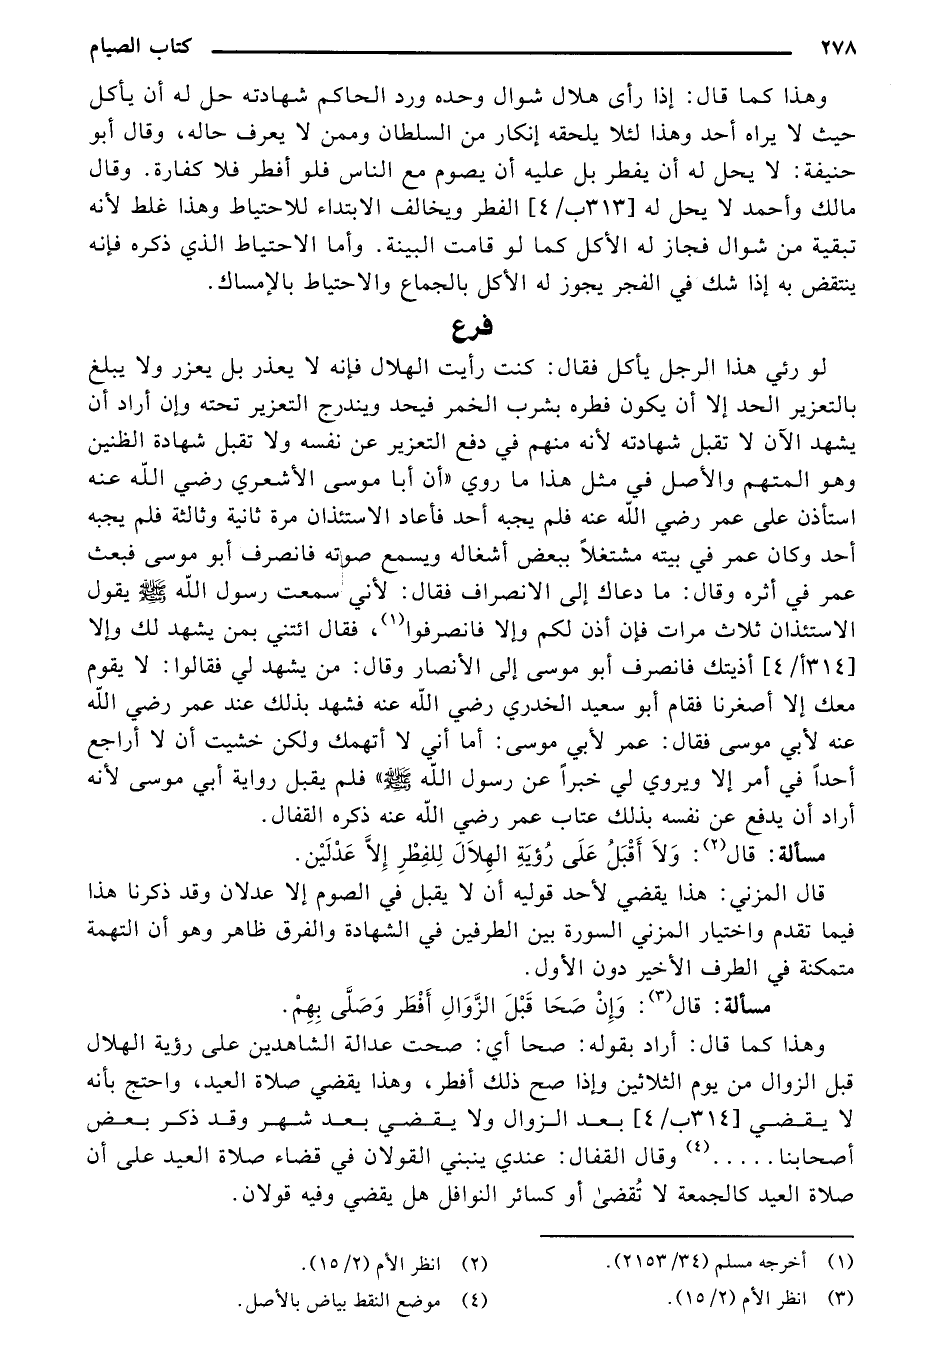 ٢٧٨ كتاب الصيام
وهذا كما قال: إذا رأى هلال شوال وحده ورد الحاكم شهادته حل له أن يأكل
حيث لا يراه أحد وهذا لئلا يلحقه إنكار من السلطان وممن لا يعرف حاله، وقال أبو
حنيفة: لا يحل له أن يفطر بل عليه أن يصوم مع الناس فلو أفطر فلا كفارة. وقال
مالك وأحمد لا يحل له [٣١٣ب/ ٤] الفطر ويخالف الابتداء للاحتياط وهذا غلط لأنه
تبقية من شوال فجاز له الأكل كما لو قامت البينة. وأما الاحتياط الذي ذكره فإنه
ينتقض به إذا شك في الفجر يجوز له الأكل بالجماع والاحتياط بالإمساك.
فرع
لو رئي هذا الرجل يأكل فقال: كنت رأيت الهلال فإنه لا يعذر بل يعزر ولا يبلغ
بالتعزير الحد إلا أن يكون فطره بشرب الخمر فيحد ويندرج التعزير تحته وإن أراد أن
يشهد الآن لا تقبل شهادته لأنه منهم في دفع التعزير عن نفسه ولا تقبل شهادة الظنين
وهو المتهم والأصل في مثل هذا ما روي «أن أبا موسى الأشعري رضي الله عنه
استأذن على عمر رضي الله عنه فلم يجبه أحد فأعاد الاستئذان مرة ثانية وثالثة فلم يجبه
أحد وكان عمر في بيته مشتغلاً ببعض أشغاله ويسمع صوته فانصرف أبو موسى فبعث
عمر في أثره وقال: ما دعاك إلى الانصراف فقال: لأني سمعت رسول الله ﷺ يقول
الاستئذان ثلاث مرات فإن أذن لكم وإلا فانصرفوا(١)، فقال ائتني بمن يشهد لك وإلا
[٣١٤أ/ ٤] أذيتك فانصرف أبو موسى إلى الأنصار وقال: من يشهد لي فقالوا: لا يقوم
معك إلا أصغرنا فقام أبو سعيد الخدري رضي الله عنه فشهد بذلك عند عمر رضي الله
عنه لأبي موسى فقال: عمر لأبي موسى: أما أني لا أتهمك ولكن خشيت أن لا أراجع
أحداً في أمر إلا ويروي لي خبراً عن رسول الله ﷺ» فلم يقبل رواية أبي موسى لأنه
أراد أن يدفع عن نفسه بذلك عتاب عمر رضي الله عنه ذكره القفال.
مسألة: قال(٢): وَلاَ أَقْبَلُ عَلَى رُؤيَةِ الهِلاَلَ لِلفِطْرِ إِلاَّ عَدْلَيْن.
قال المزني: هذا يقضي لأحد قوليه أن لا يقبل في الصوم إلا عدلان وقد ذكرنا هذا
فيما تقدم واختيار المزني السورة بين الطرفين في الشهادة والفرق ظاهر وهو أن التهمة
متمكنة في الطرف الأخير دون الأول.
مسألة: قال(٣): وَإِنْ صَحَا قَبْلَ الزَّوَالِ أَفْطَر وَصَلَّى بِهِمْ.
وهذا كما قال: أراد بقوله: صحا أي: صحت عدالة الشاهدين على رؤية الهلال
قبل الزوال من يوم الثلاثين وإذا صح ذلك أفطر، وهذا يقضي صلاة العيد، واحتج بأنه
لا يقضي [٣١٤ب/ ٤] بعد الزوال ولا يقضي بعد شهر وقد ذكر بعض
أصحابنا.....(٤) وقال القفال: عندي ينبني القولان في قضاء صلاة العيد على أن
صلاة العيد كالجمعة لا تُقضىٰ أو كسائر النوافل هل يقضي وفيه قولان.
(١) أخرجه مسلم (٣٤/ ٢١٥٣). (٢) انظر الأم (٢/ ١٥).
(٣) انظر الأم (٢/ ١٥). (٤) موضع النقط بياض بالأصل.